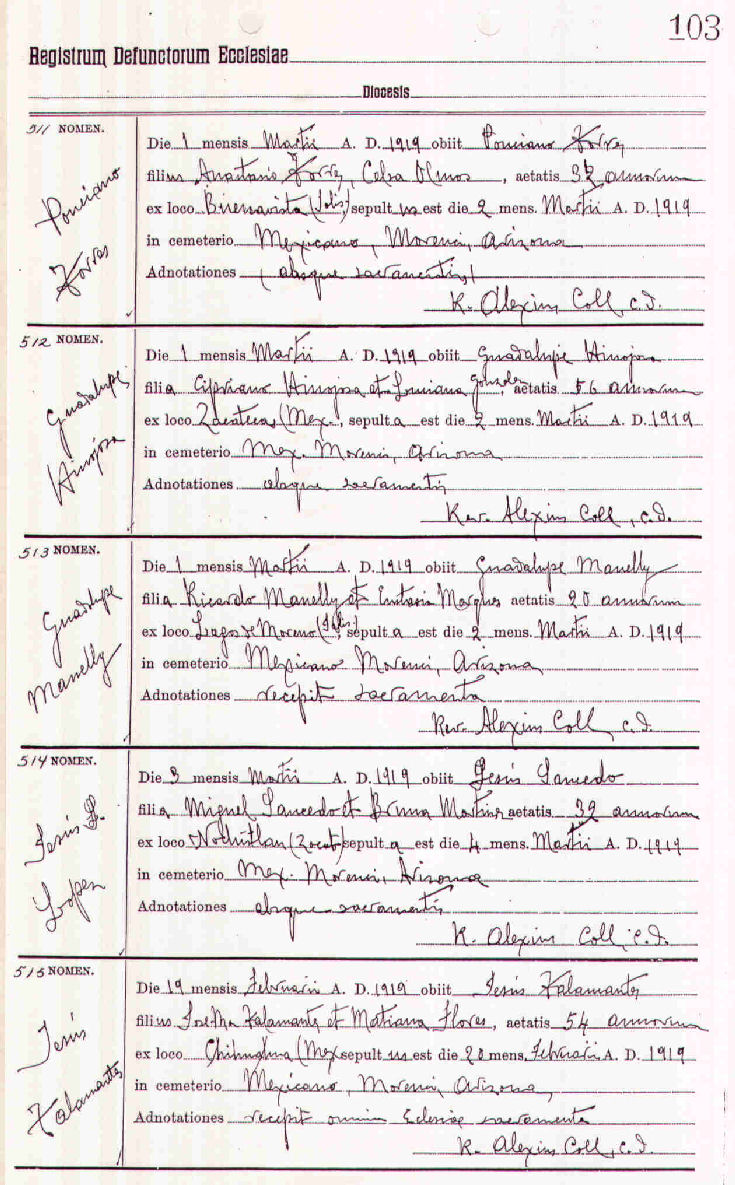 103
Registrum Defunctorum Ecclesiae
Diocesis
511 NOMEN.
Ponciano
Torres
Die 1 mensis Martii A. D. 1919 obiit Ponciano Torres
filius Anastasio Torres, Celsa Olmos, aetatis 32 annorum
ex loco Buenavista (Jalis) sepult us est die 2 mens. Martii A. D. 1919
in cemeterio Mexicano, Morenci, Arizona
Adnotationes (absque sacramentis)
R. Alexius Coll c.d.
512 NOMEN.
Guadalupe
Hinojosa
Die 1 mensis Martii A. D. 1919 obiit Guadalupe Hinojosa
filia Cipriano Hinojosa et Louciana Gonzalez, aetatis 56 annorum
ex loco Zacatecas (Mex., sepult a est die 2 mens. Martii A. D. 1919
in cemeterio Mex. Morenci, Arizona
Adnotationes absque sacramentis
Rev. Alexius Coll, c.d.
513 NOMEN.
Guadalupe
Manelly
Die 1 mensis Martii A. D. 1919 obiit Guadalupe Manelly
filia Ricardo Manelly et Marques aetatis 20 annorum
ex loco Lagos de Moreno (Jalis) sepult a est die 2 mens. Martii A. D. 1919
in cemeterio Mexicano Morenci, Arizona
Adnotationes recepit sacramenta
Rev. Alexius Coll, c.d.
514 NOMEN.
Jesús S.
Lopez
Die 3 mensis Martii A. D. 1919 obiit Jesús Saucedo
filia Miguel Saucedo et Bruna Martinez aetatis 39 annorum
ex loco Nochistlan (Zacat) sepult a est die 4 mens. Martii A. D. 1919
in cemeterio Mex. Morenci, Arizona
Adnotationes absque sacramentis
R. Alexius Coll, c.d.
515 NOMEN.
Jesús
Talamantes
Die 19 mensis Februarii A. D. 1919 obiit Jesús Talamantes
filius Talamantes et Matiana Flores, aetatis 54 annorum
ex loco Chihuahua (Mex sepult us est die 20 mens. Februarii A. D. 1919
in cemeterio Mexicano, Morenci, Arizona,
Adnotationes recepit omnia Eclesiae sacramenta
R. Alexius Coll, c.d.